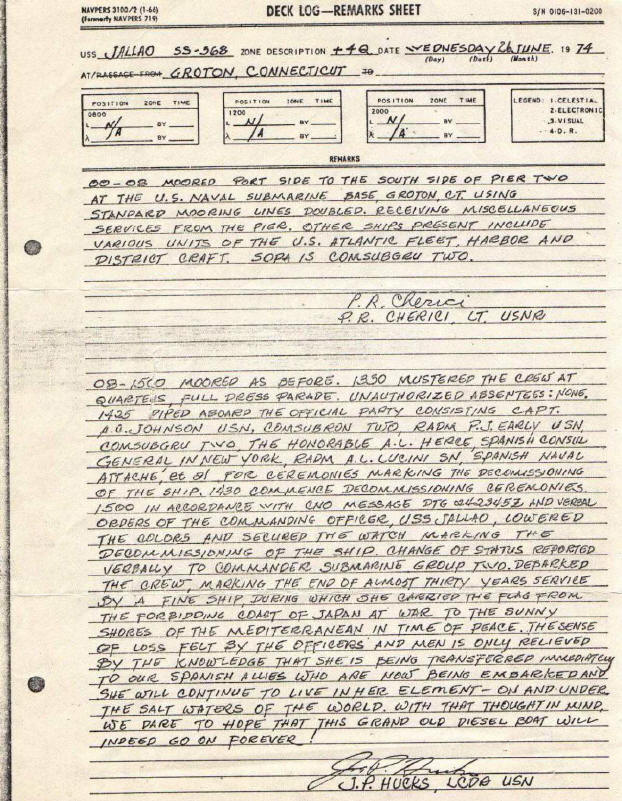 NAVPERS 3100/2 (1-66)
(Formerly NAVPERS 719)
DECK LOG—REMARKS SHEET
S/N 0106-131-0200
USS JALLAO SS-368 ZONE DESCRIPTION +4Q DATE WEDNESDAY 26 JUNE, 1974
(Day) (Date) (Month)
AT/PASSAGE FROM GROTON, CONNECTICUT TO
POSITION ZONE TIME
0800
L N/A BY
λ BY
POSITION ZONE TIME
1200
L N/A BY
λ BY
POSITION ZONE TIME
2000
L N/A BY
λ BY
LEGEND: 1-CELESTIAL
2-ELECTRONIC
3-VISUAL
4-D. R.
REMARKS
00-08 MOORED PORT SIDE TO THE SOUTH SIDE OF PIER TWO
AT THE U.S. NAVAL SUBMARINE BASE, GROTON, CT. USING
STANDARD MOORING LINES DOUBLED. RECEIVING MISCELLANEOUS
SERVICES FROM THE PIER. OTHER SHIPS PRESENT INCLUDE
VARIOUS UNITS OF THE U.S. ATLANTIC FLEET, HARBOR AND
DISTRICT CRAFT. SOPA IS COMSUBGRU TWO.
P.R. Cherici
P.R. CHERICI, LT. USNR
08-1500 MOORED AS BEFORE. 1350 MUSTERED THE CREW AT
QUARTERS, FULL DRESS PARADE. UNAUTHORIZED ABSENTEES: NONE.
1425 PIPED ABOARD THE OFFICIAL PARTY CONSISTING CAPT.
A.C. JOHNSON USN, COMSUBRON TWO, RADM P.J. EARLY USN,
COMSUBGRU TWO, THE HONORABLE A.L. HERCE, SPANISH CONSUL
GENERAL IN NEW YORK, RADM A.L. LUCINI SN, SPANISH NAVAL
ATTACHE, et al FOR CEREMONIES MARKING THE DECOMISSIONING
OF THE SHIP. 1430 COMMENCE DECOMMISSIONING CEREMONIES.
1500 IN ACCORDANCE WITH CNO MESSAGE DTG 242345Z AND VERBAL
ORDERS OF THE COMMANDING OFFICER, USS JALLAO, LOWERED
THE COLORS AND SECURED THE WATCH MARKING THE
DECOMMISSIONING OF THE SHIP. CHANGE OF STATUS REPORTED
VERBALLY TO COMMANDER SUBMARINE GROUP TWO. DEPARKED
THE CREW, MARKING THE END OF ALMOST THIRTY YEARS SERVICE
BY A FINE SHIP, DURING WHICH SHE CARRIED THE FLAG FROM
THE FORBIDDING COAST OF JAPAN AT WAR TO THE SUNNY
SHORES OF THE MEDITERRANEAN IN TIME OF PEACE. THE SENSE
OF LOSS FELT BY THE OFFICERS AND MEN IS ONLY RELIEVED
BY THE KNOWLEDGE THAT SHE IS BEING TRANSFERRED IMMEDIATELY
TO OUR SPANISH ALLIES WHO ARE NOW BEING EMBARKED AND
SHE WILL CONTINUE TO LIVE IN HER ELEMENT - ON AND UNDER
THE SALT WATERS OF THE WORLD. WITH THAT THOUGHT IN MIND,
WE DARE TO HOPE THAT THIS GRAND OLD DIESEL BOAT WILL
INDEED GO ON FOREVER!
J.P. HUCKS, LCDR USN